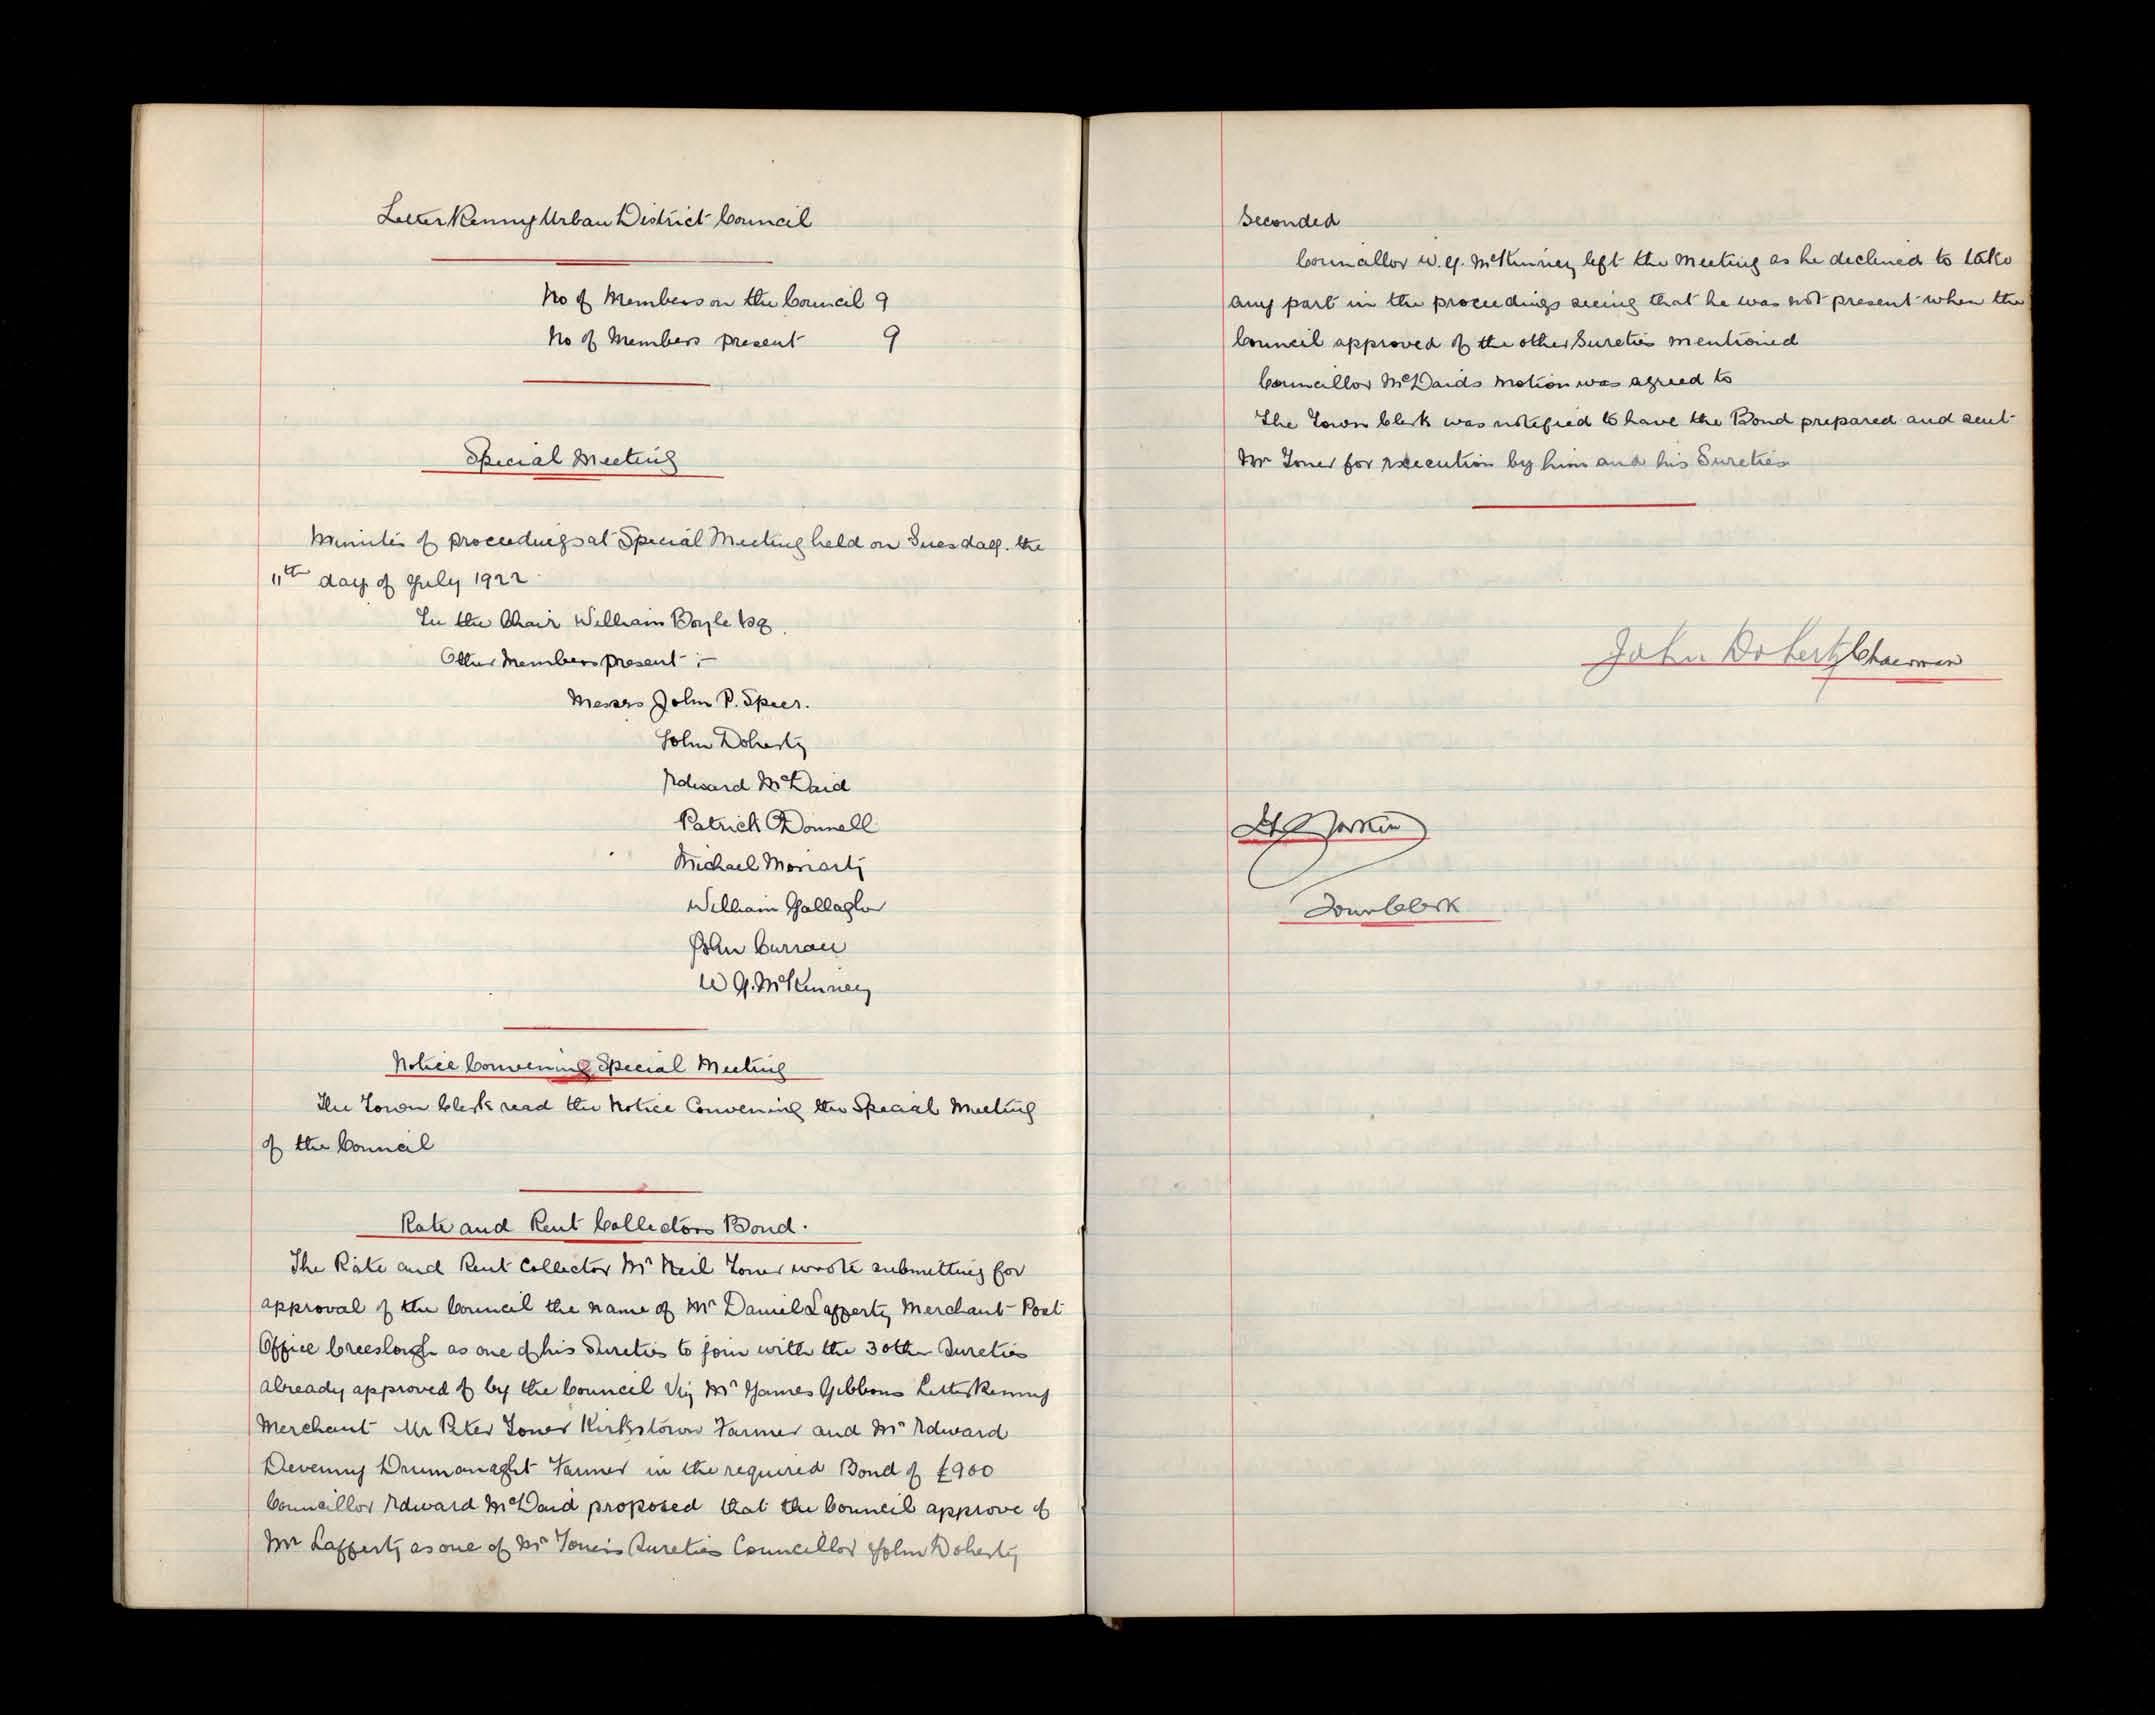 Letterkenny Urban District Council
No of Members on the Council 9
No of Members present 9
Special Meeting
Minutes of proceedings at Special Meeting held on Tuesday. the
11th day of July 1922
In the Chair William Boyle Esq.
Other Members present :-
Messrs John P. Speer.
John Doherty
Edward McDaid
Patrick O'Donnell
Michael Moriarty
William Gallagher
John Curran
W G. McKinney
Notice Convening Special Meeting
The Town Clerk read the Notice Convening the Special Meeting
of the Council
Rate and Rent Collectors Bond.
The Rate and Rent Collector Mr Neil Toner wrote submitting for
approval of the Council the name of Mr Daniel Lafferty Merchant Post
Office Creeslough as one of his Sureties to join with the 3 other Sureties
already approved of by the Council Viz Mr James Gibbons Letterkenny
Merchant Mr Peter Toner Kirkstown Farmer and Mr Edward
Devenny Drumanaght Farmer in the required Bond of £900
Councillor Edward McDaid proposed that the Council approve of
Mr Lafferty as one of Mr Toners Sureties Councillor John Doherty
Seconded
Councillor W. G. McKinney left the Meeting as he declined to take
any part in the proceedings seeing that he was not present when the
Council approved of the other Sureties mentioned
Councillor McDaids motion was agreed to
The Town Clerk was notified to have the Bond prepared and sent
Mr Toner for execution by him and his Sureties
John Doherty Chairman
Town Clerk